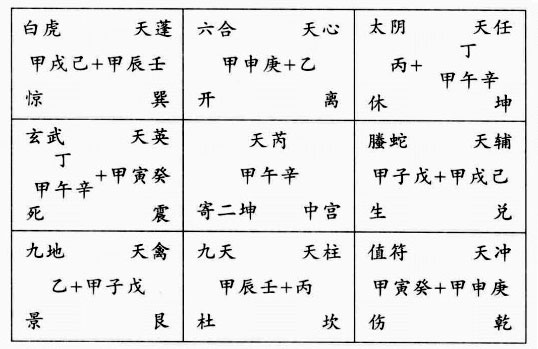 白虎 天蓬
甲戌己+甲辰壬
惊 巽
六合 天心
甲申庚+乙
开 离
太阴 天任
丁
丙+甲午辛
休 坤
玄武 天英
丁
甲午辛+甲寅癸
死 震
天芮
甲午辛
寄二坤 中宫
螣蛇 天辅
甲子戊+甲戌己
生 兑
九地 天禽
乙+甲子戊
景 艮
九天 天柱
甲辰壬+丙
杜 坎
值符 天冲
甲寅癸+甲申庚
伤 乾